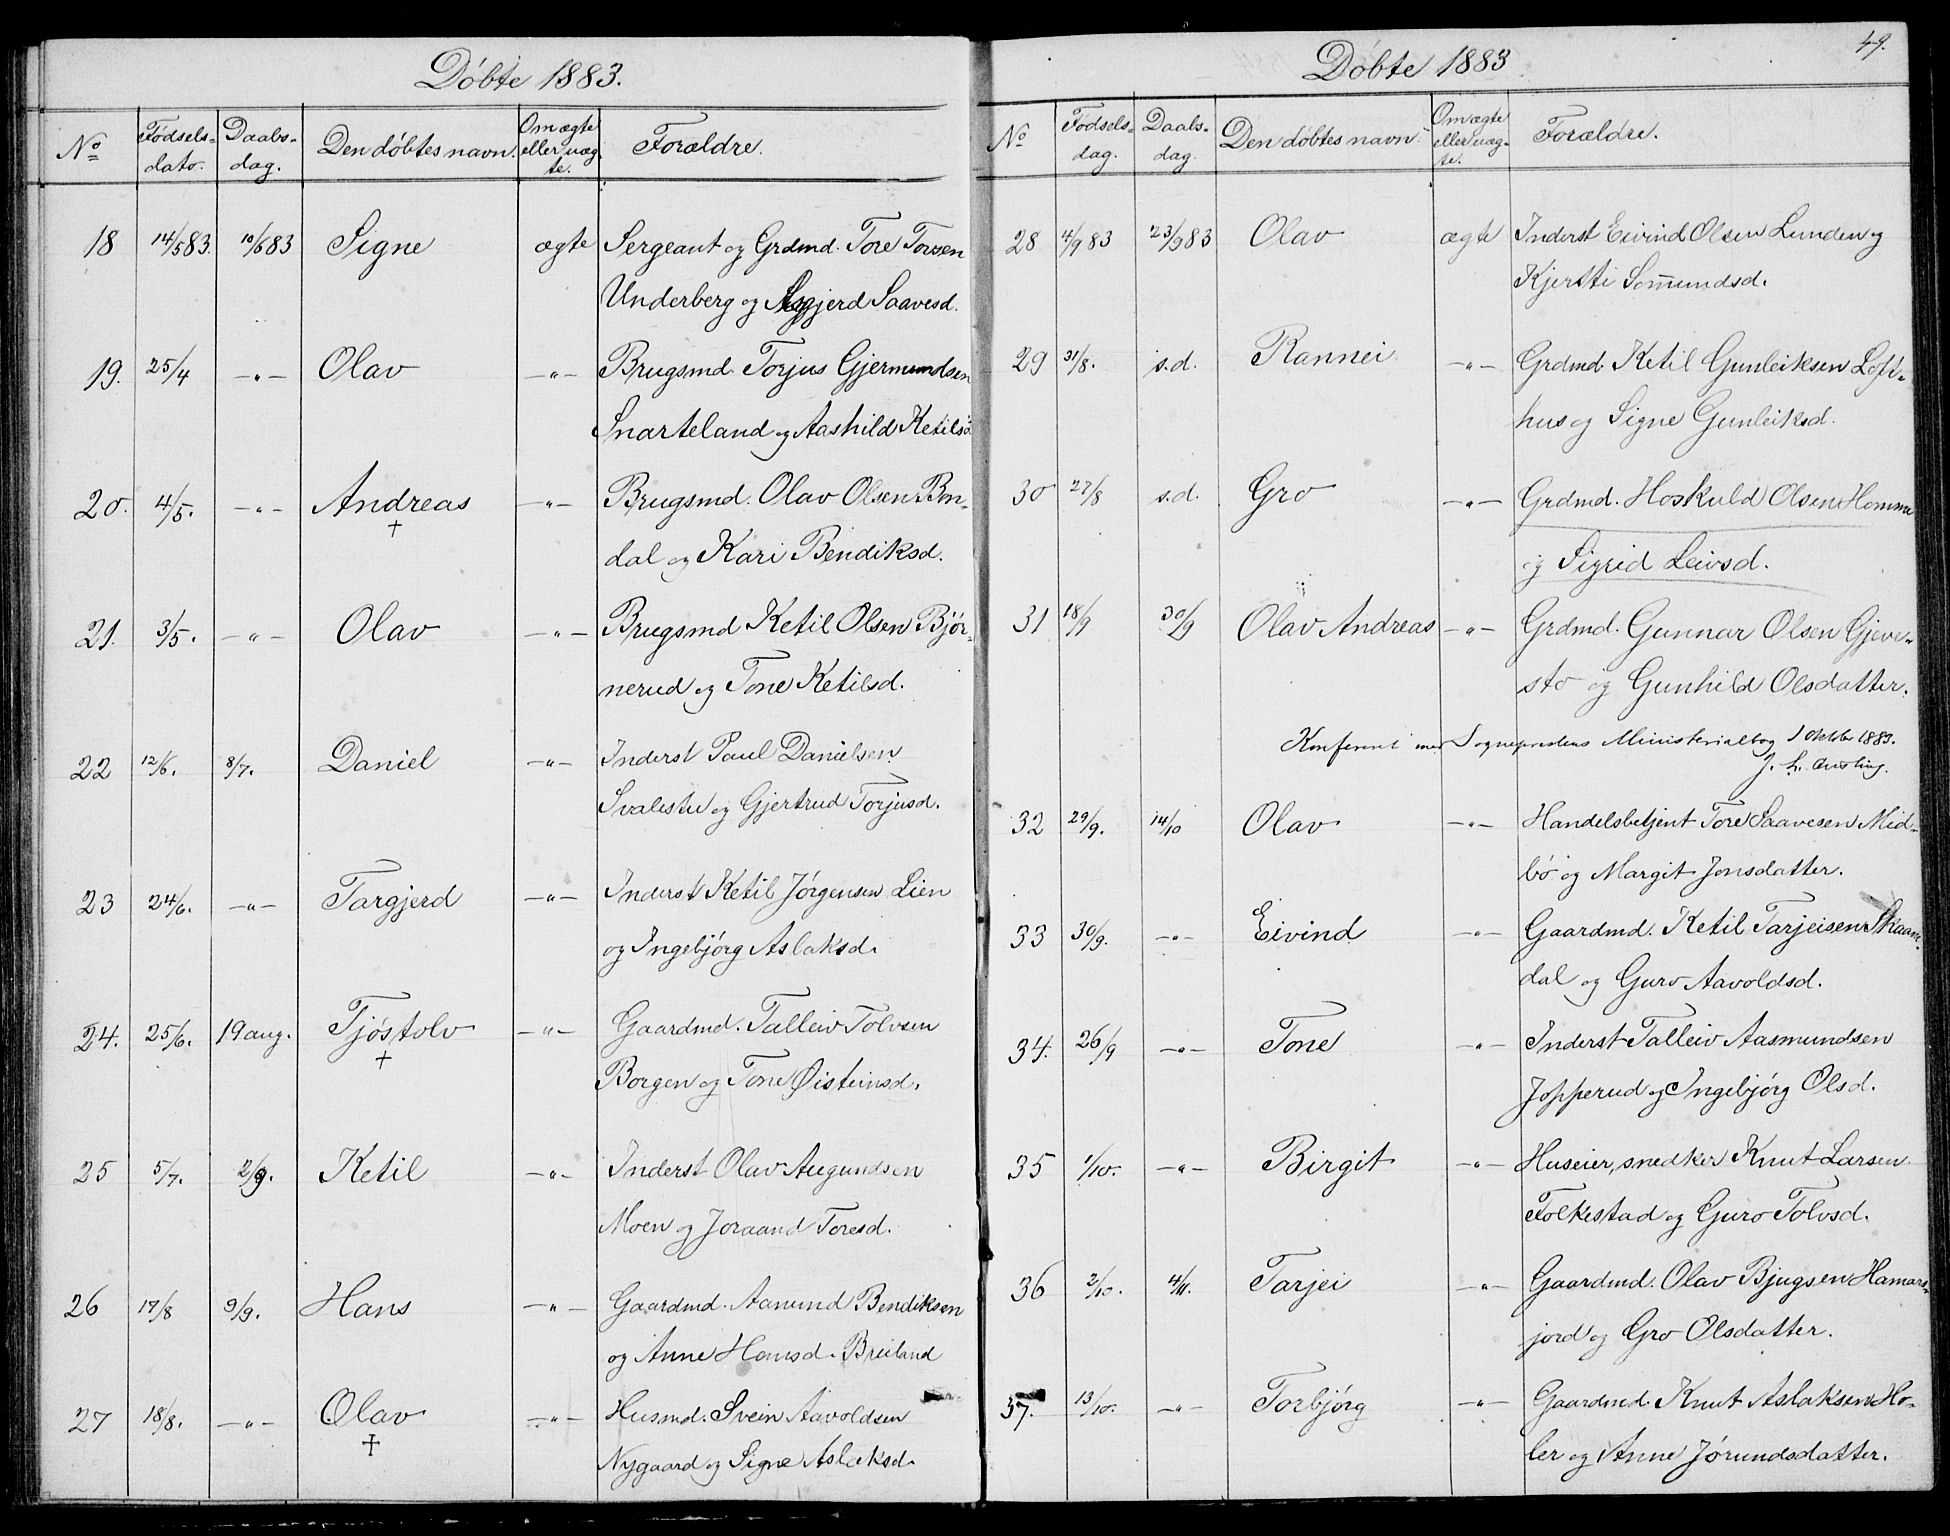 Döbte 1883.
No
Födsels-
dato.
Daabs-
dag.
Den döbtes navn.
Om ægte
eller uæg-
te.
Forældre.
18 14/5 83. 10/6 83 Signe ægte Sergeant og Grdmd. Tore Toresen
Underberg og Asgjerd Saavesd.
19. 25/4 -"- Olav -"- Brugsmd. Torjus Gjermundsen
Snarteland og Aashild Ketilsd
20. 4/5. -"- Andreas -"- Brugsmd. Olav Olsen Bon-
† dal og Kari Bendiksd.
21. 3/5. -"- Olav -"- Brugsmd Ketil Olsen Björ-
nerud og Tone Ketilsd.
22 12/6. 8/7. Daniel -"- Inderst Paul Danielsen
Svalestu og Gjertrud Torjusd.
23 24/6. -"- Targjerd -"- Inderst Ketil Jörgensen Lien
og Ingebjörg Aslaksd.
24. 25/6. 19 aug. Tjöstolv -"- Gaardmd. Talleiv Tolvsen
† Borgen og Tone Øisteinsd.
25 5/7. 2/9. Ketil -"- Inderst Olav Augundsen
Moen og Joraand Toresd.
26 17/8 9/9. Hans -"- Gaardmd. Aanund Bendiksen
og Anne Hansd. Breiland
27 18/8. -"- Olav -"- Husmd. Svein Aavoldsen
† Nygaard og Signe Aslaksd.
49.
Döbte 1883
No
Födsels-
dag.
Daabs-
dag.
Den döbtes navn.
Om ægte
eller uæg-
te.
Forældre.
28 4/9 83 23/9 83 Olav ægte Inderst Eivind Olsen Lunden og
Kjersti Som̅undsd.
29 31/8. s.d. Rannei -"- Grdmd. Ketil Gunleiksen Loft-
hus og Signe Gunleiksd.
30 27/8 s.d. Gro -"- Grdmd. Hoskuld Olsen Homme
og Sigrid Leivsd.
31 18/9 30/9 Olav Andreas -"- Grdmd. Gunnar Olsen Gjeve-
sto og Gunhild Olsdatter.
Konferert med Sogneprestens Ministerialbog 1 Oktober 1883.
32 29/9. 14/10 Olav -"- Handelsbetjent Tore Saavesen Mid-
bö og Margit Jonsdatter.
33 30/9. -"- Eivind -"- Gaardmd. Ketil Tarjeisen Skaan-
dal og Guro Aavoldsd.
34. 26/9 -"- Tone -"- Inderst Talleiv Aasmundsen
Jopperud og Ingebjörg Olsd.
35 1/10. -"- Birgit -"- Huseier, snedker Knut Larsen
Folkestad og Guro Tolvsd.
36 2/10. 4/11. Tarjei -"- Gaardmd. Olav Bjugsen Hamars-
jord og Gro Olsdatter.
37. 13/10. -"- Torbjörg -"- Gaardmd. Knut Aslaksen Ho-
ler og Anne Jörundsdatter.